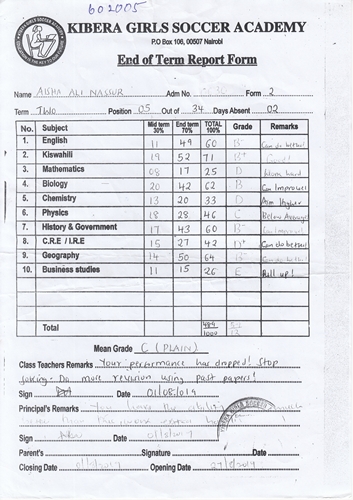 602005
KIBERA GIRLS SOCCER ACADEMY
P.O Box 106, 00507 Nairobi
End of Term Report Form
Name AISHA ALI NASSUR Adm No. Form 2
Term TWO Position 05 Out of 34 Days Absent 02
No. Subject Mid term 30% End term 70% TOTAL 100% Grade Remarks
1. English 11 49 60 B- Can do better
2. Kiswahili 19 52 71 B+ Good!
3. Mathematics 08 17 25 D Work hard
4. Biology 20 42 62 B Can Improve
5. Chemistry 13 20 33 D Aim Higher
6. Physics 18 28 46 C Below Average
7. History & Government 17 43 60 B- Can Improve
8. C.R.E / I.R.E 15 27 42 D+ Can do better
9. Geography 14 50 64 B- Can do better
10. Business studies 11 15 26 E Pull up!
Total 489 1000
Mean Grade C (PLAIN)
Class Teachers Remarks Your performance has dropped! Stop
joking. Do more revision using past papers!
Sign Date 01/08/019
Principal's Remarks You have the ability
Sign Date
KIBERA GIRLS SOCCER
Parent's Signature Date
Closing Date Opening Date